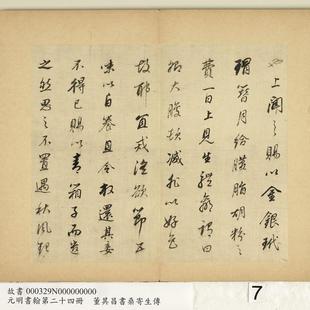 上聞之賜以金銀玳
瑁簪月給臙脂胡粉之
費一日上見生體羸謂曰
卿大腹頓減非以好色
故耶宜戒淫欲節五
味以自養且令放還其妾
不得已賜以青箱子而遣
之然思之不置遇秋風起
故書 000329N000000000
元明書翰第二十四冊 董其昌書桑寄生傳
7